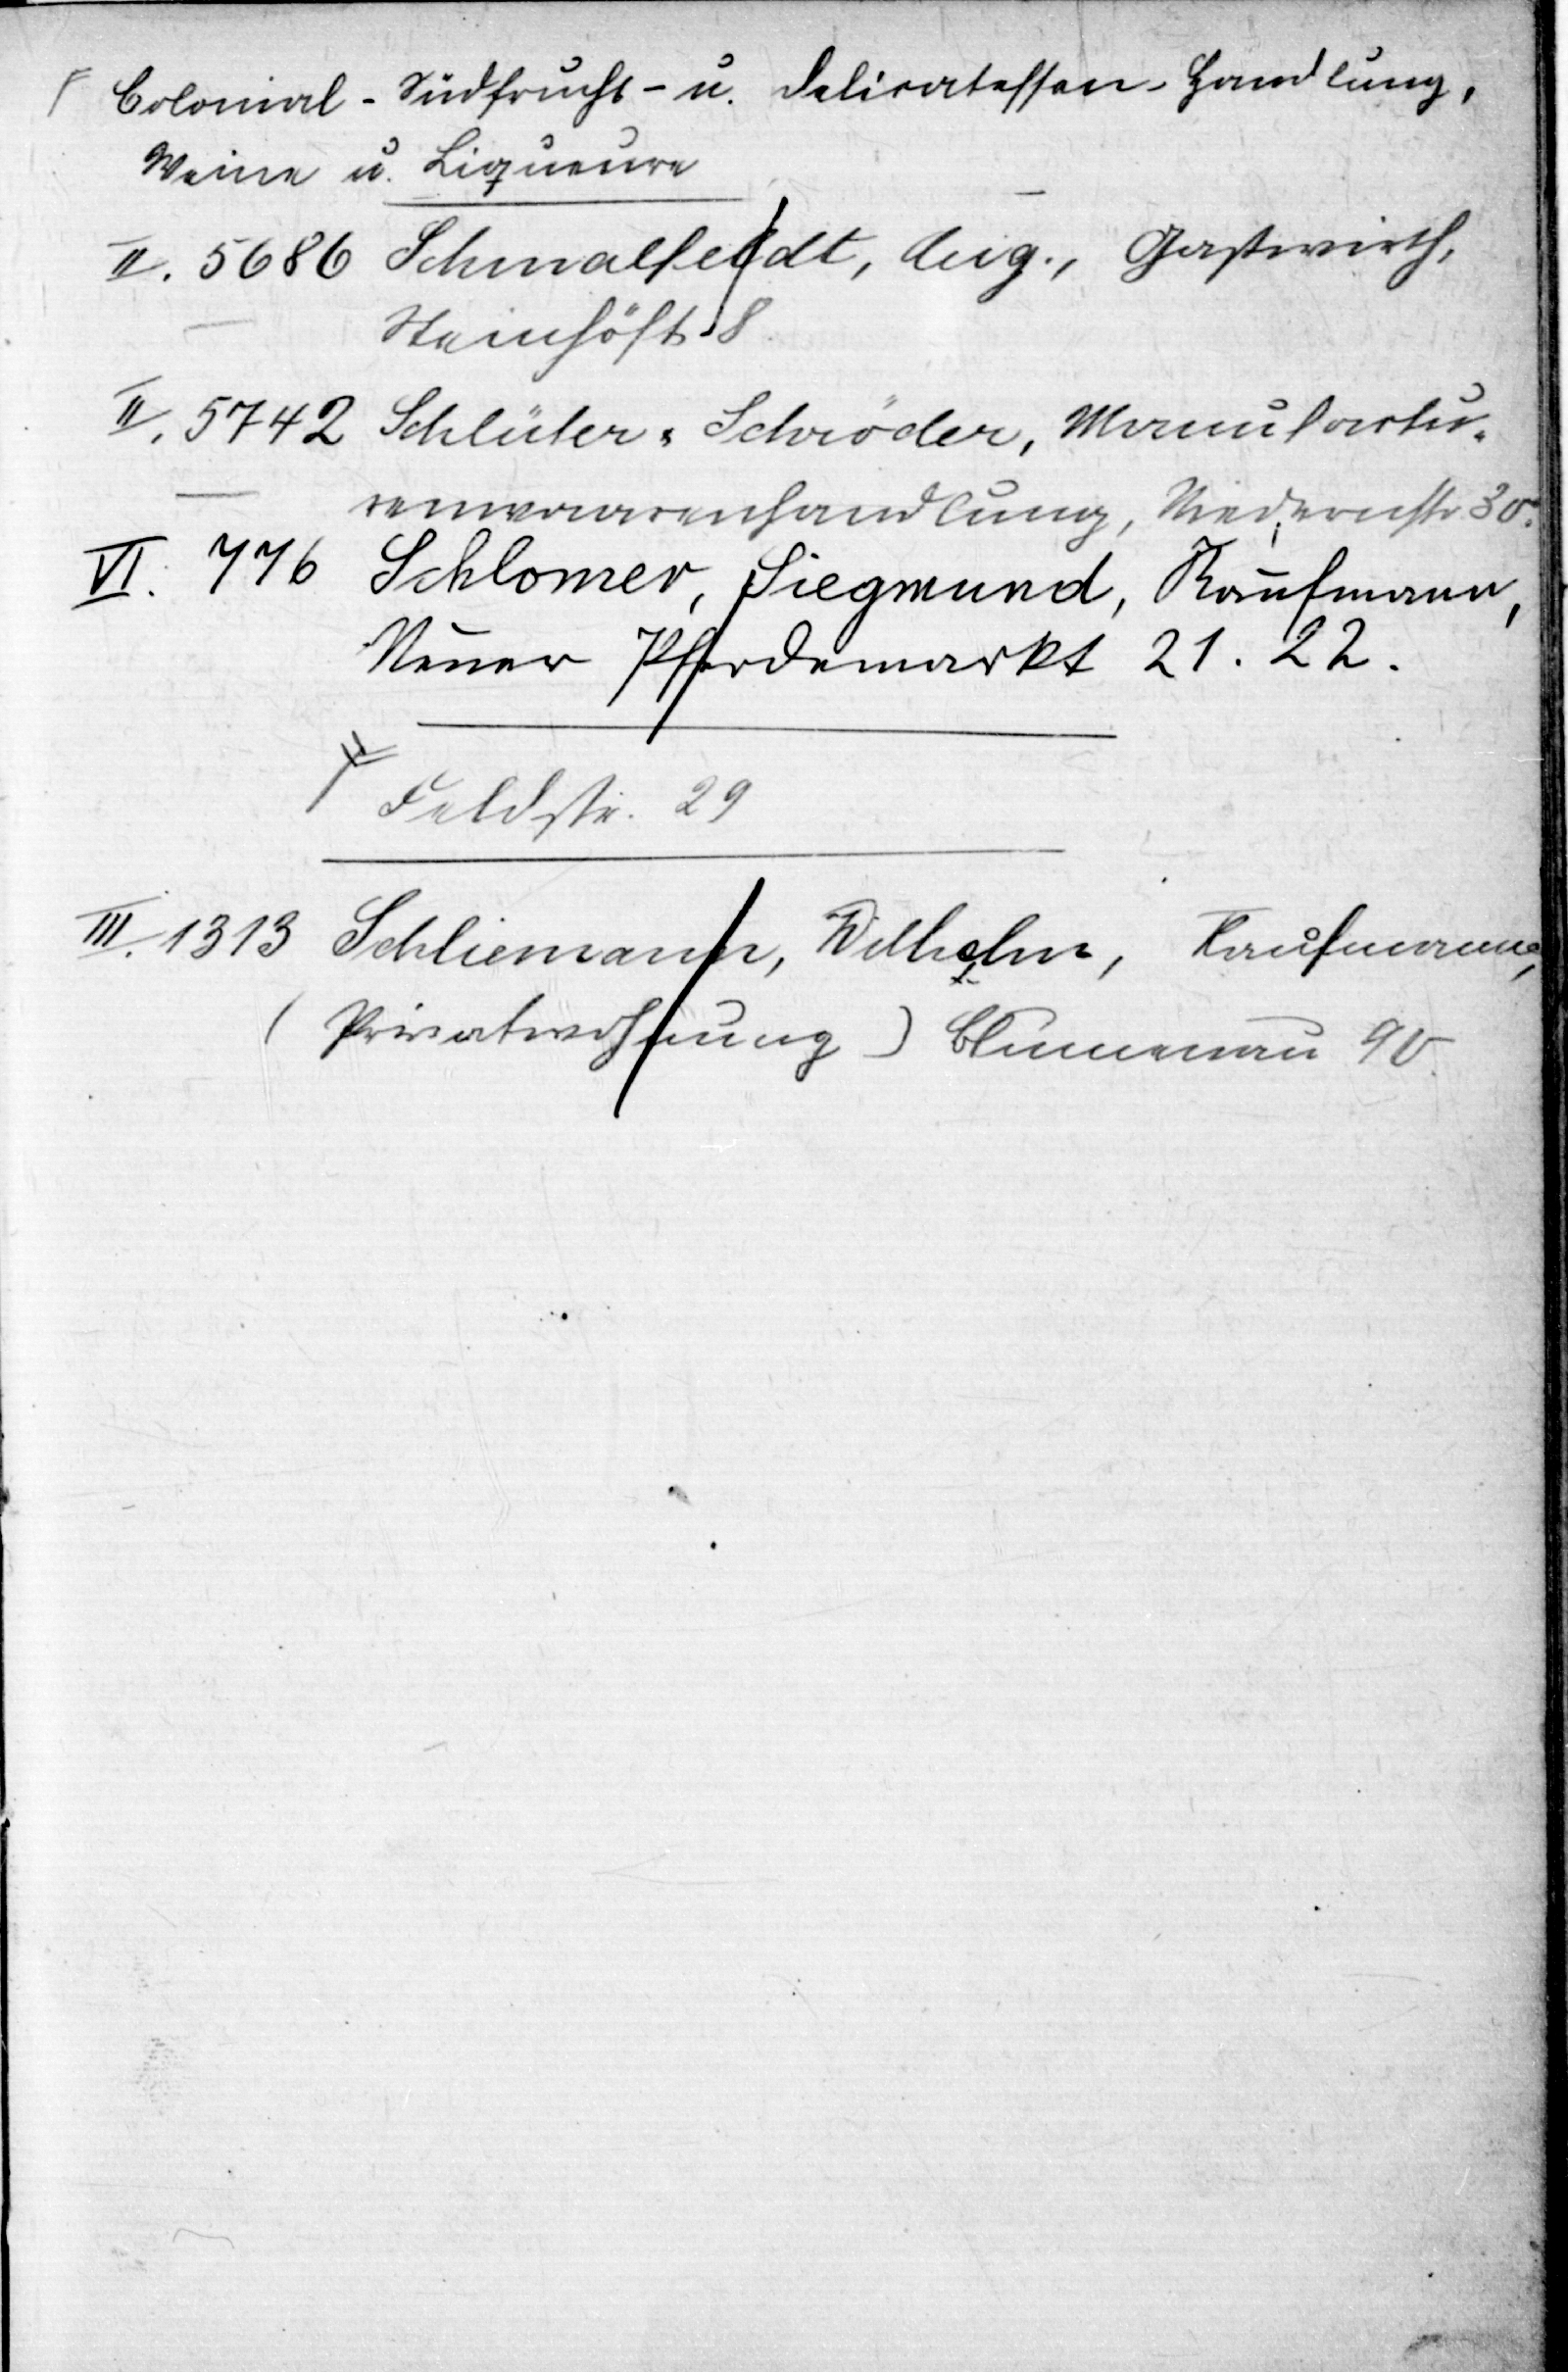 Colonial- Südfrucht- u. Delicatessen-Handlung,
Weine u. Liqueure
II. 5686 Schmalfeldt, Aug., Gastwirth,
Steinhöft 8.
II. 5742 Schlüter & Schröder, Manufactu-
renwaarenhandlung, Niedernstr 30.
VI. 776 Schlomer, Siegmund, Kaufmann,
Neuer Pferdemarkt 21. 22.
Feldstr. 29
III. 1313 Schliemann, Wilhelm, Kaufmann,
(Privatwohnung) Blumenau 90.